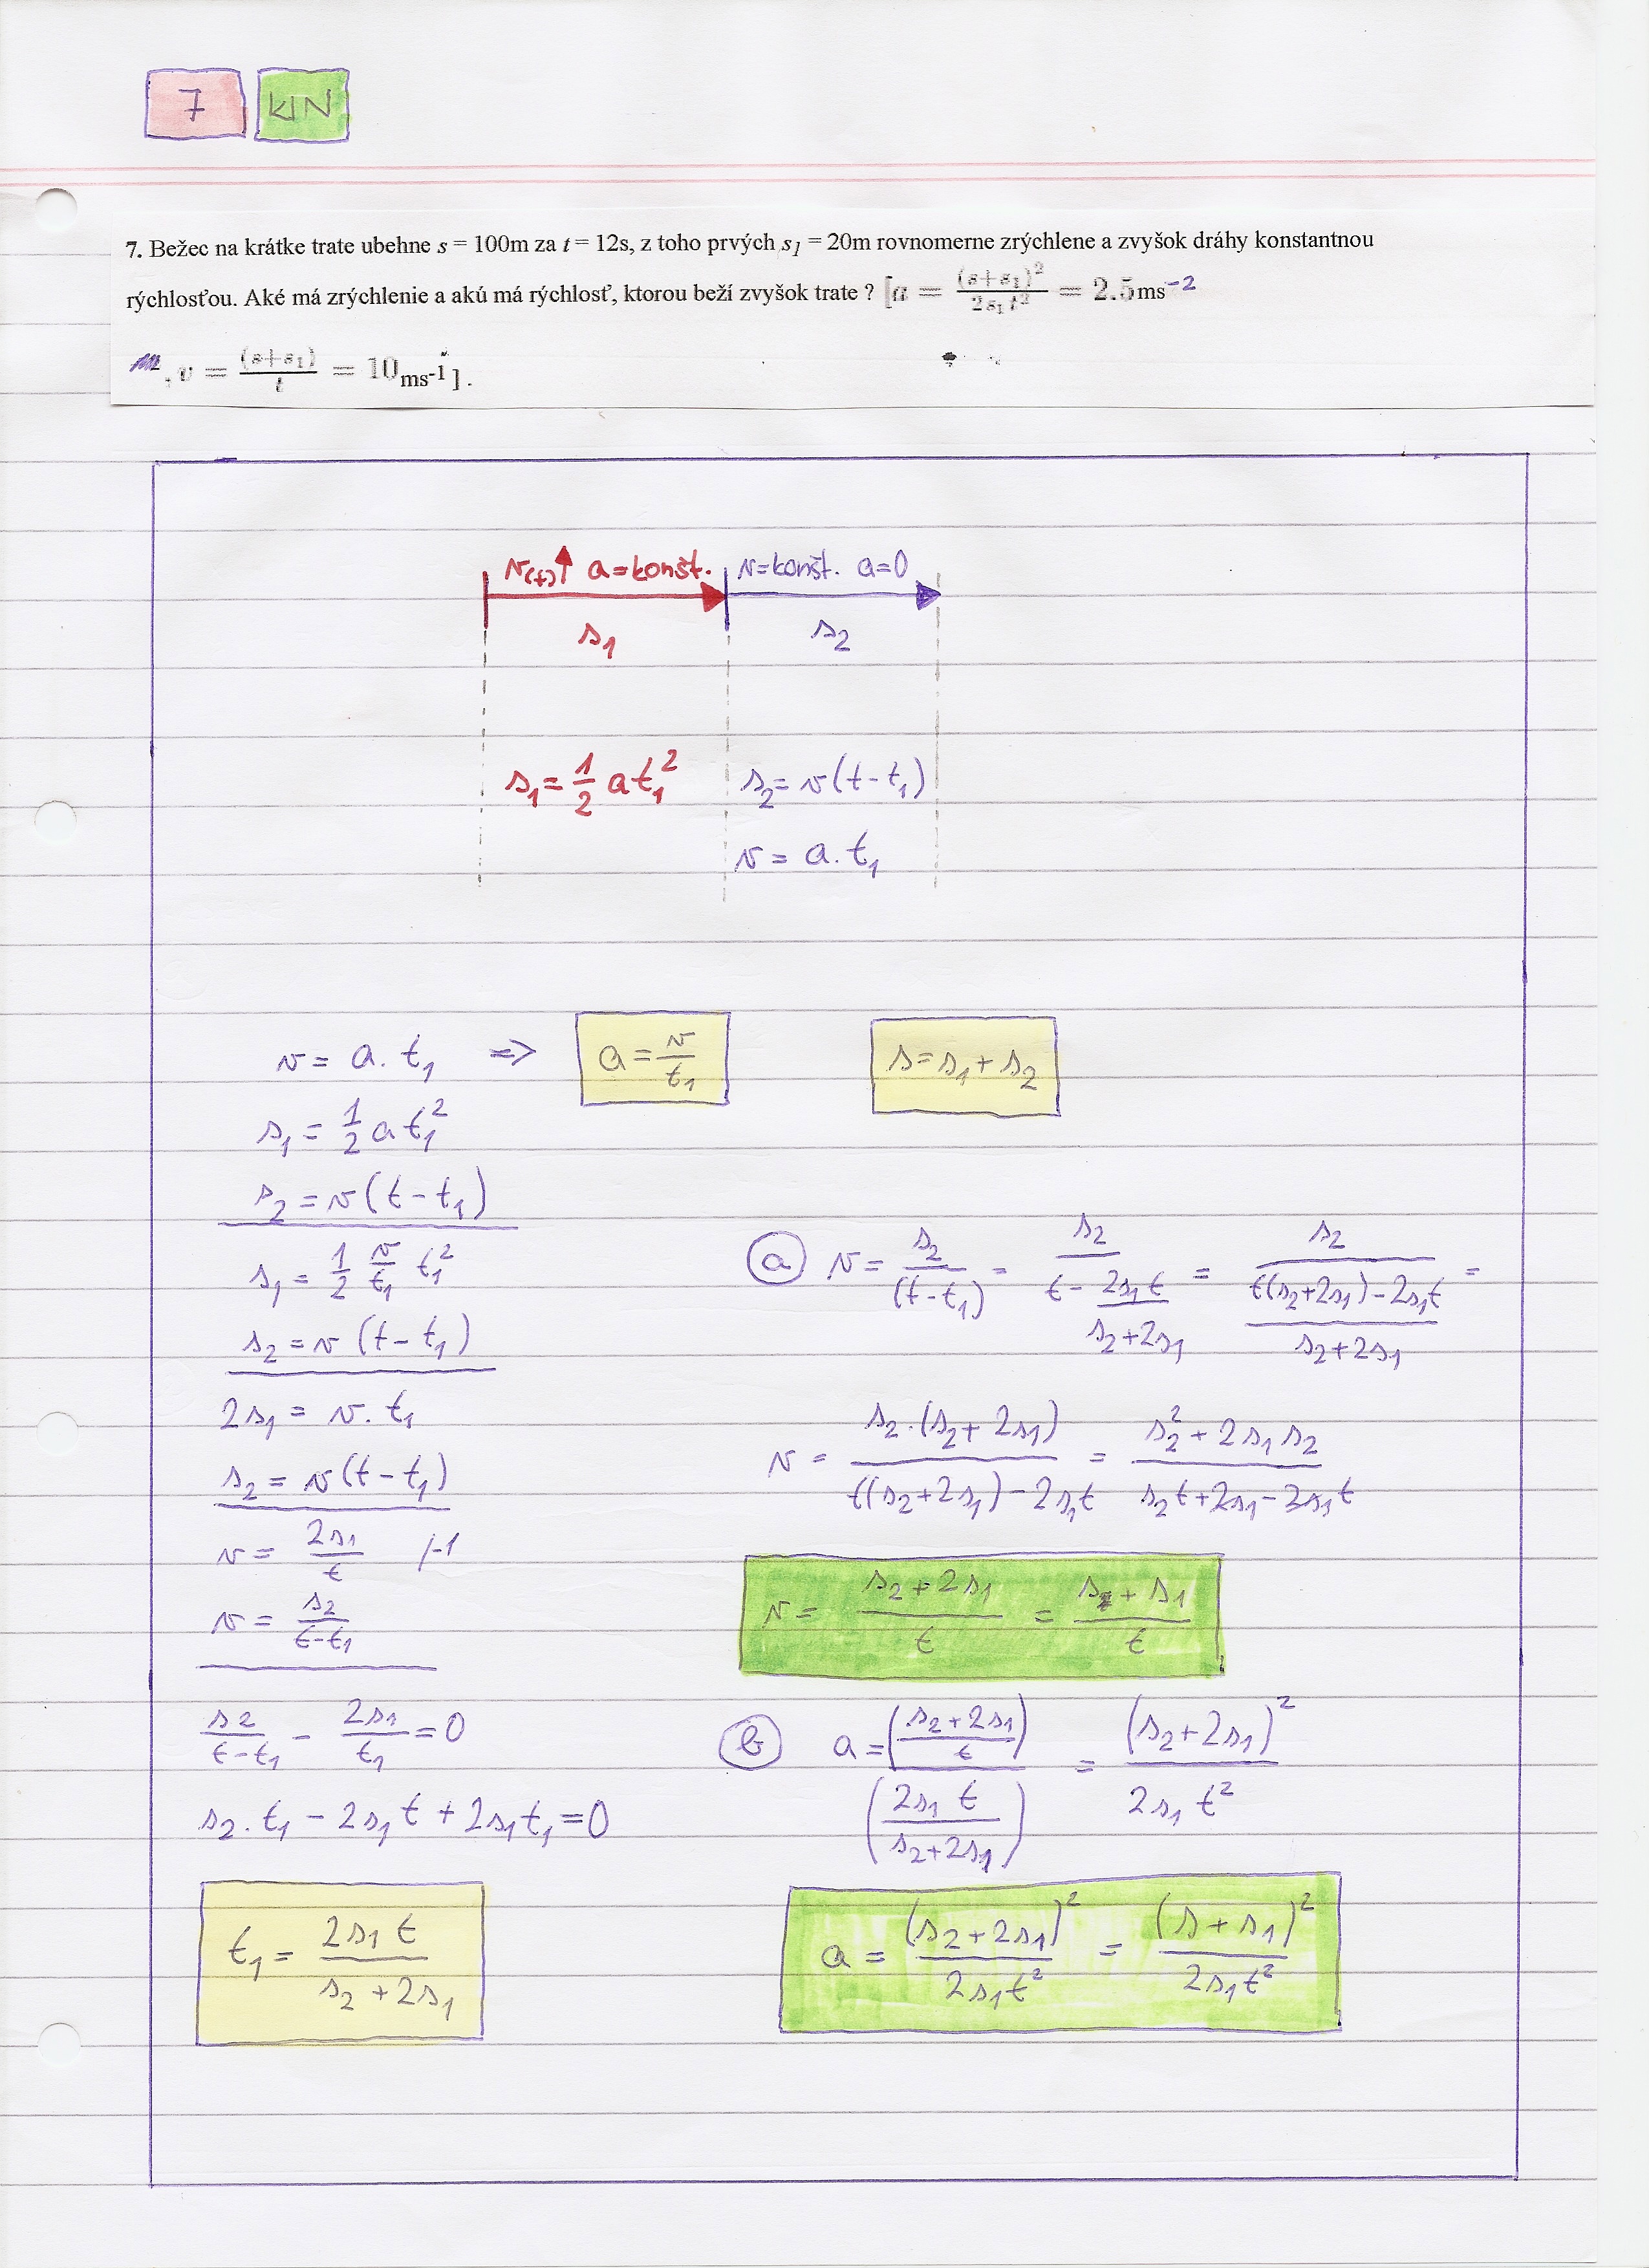 7 KIN
7. Bežec na krátke trate ubehne s = 100m za t = 12s, z toho prvých s1 = 20m rovnomerne zrýchlene a zvyšok dráhy konstantnou
rýchlosťou. Aké má zrýchlenie a akú má rýchlosť, ktorou beží zvyšok trate ? [a = (s+s1)²/2s1t² = 2.5ms⁻²
, v = (s+s1)/t = 10ms-1] .
v(t)↑ a=konšt. v=konšt. a=0
s1 s2
s1 = 1/2 a t1² s2 = v(t-t1)
v = a.t1
v = a.t1 => a = v/t1 s = s1 + s2
s1 = 1/2 a t1²
s2 = v(t-t1)
s1 = 1/2 v/t1 t1²
s2 = v(t-t1)
2s1 = v.t1
s2 = v(t-t1)
v = 2s1/t /-1
v = s2/(t-t1)
s2/(t-t1) - 2s1/t1 = 0
s2.t1 - 2s1t + 2s1t1 = 0
t1 = 2s1t/(s2+2s1)
a v = s2/(t-t1) = s2/(t - 2s1t/(s2+2s1)) = s2/((t(s2+2s1)-2s1t)/(s2+2s1)) =
v = s2.(s2+2s1)/(t(s2+2s1)-2s1t) = (s2²+2s1s2)/(s2t+2s1-2s1t)
v = (s2+2s1)/t = (s+s1)/t
b a = ((s2+2s1)/t)/(2s1t/(s2+2s1)) = (s2+2s1)²/2s1t²
a = (s2+2s1)²/2s1t² = (s+s1)²/2s1t²